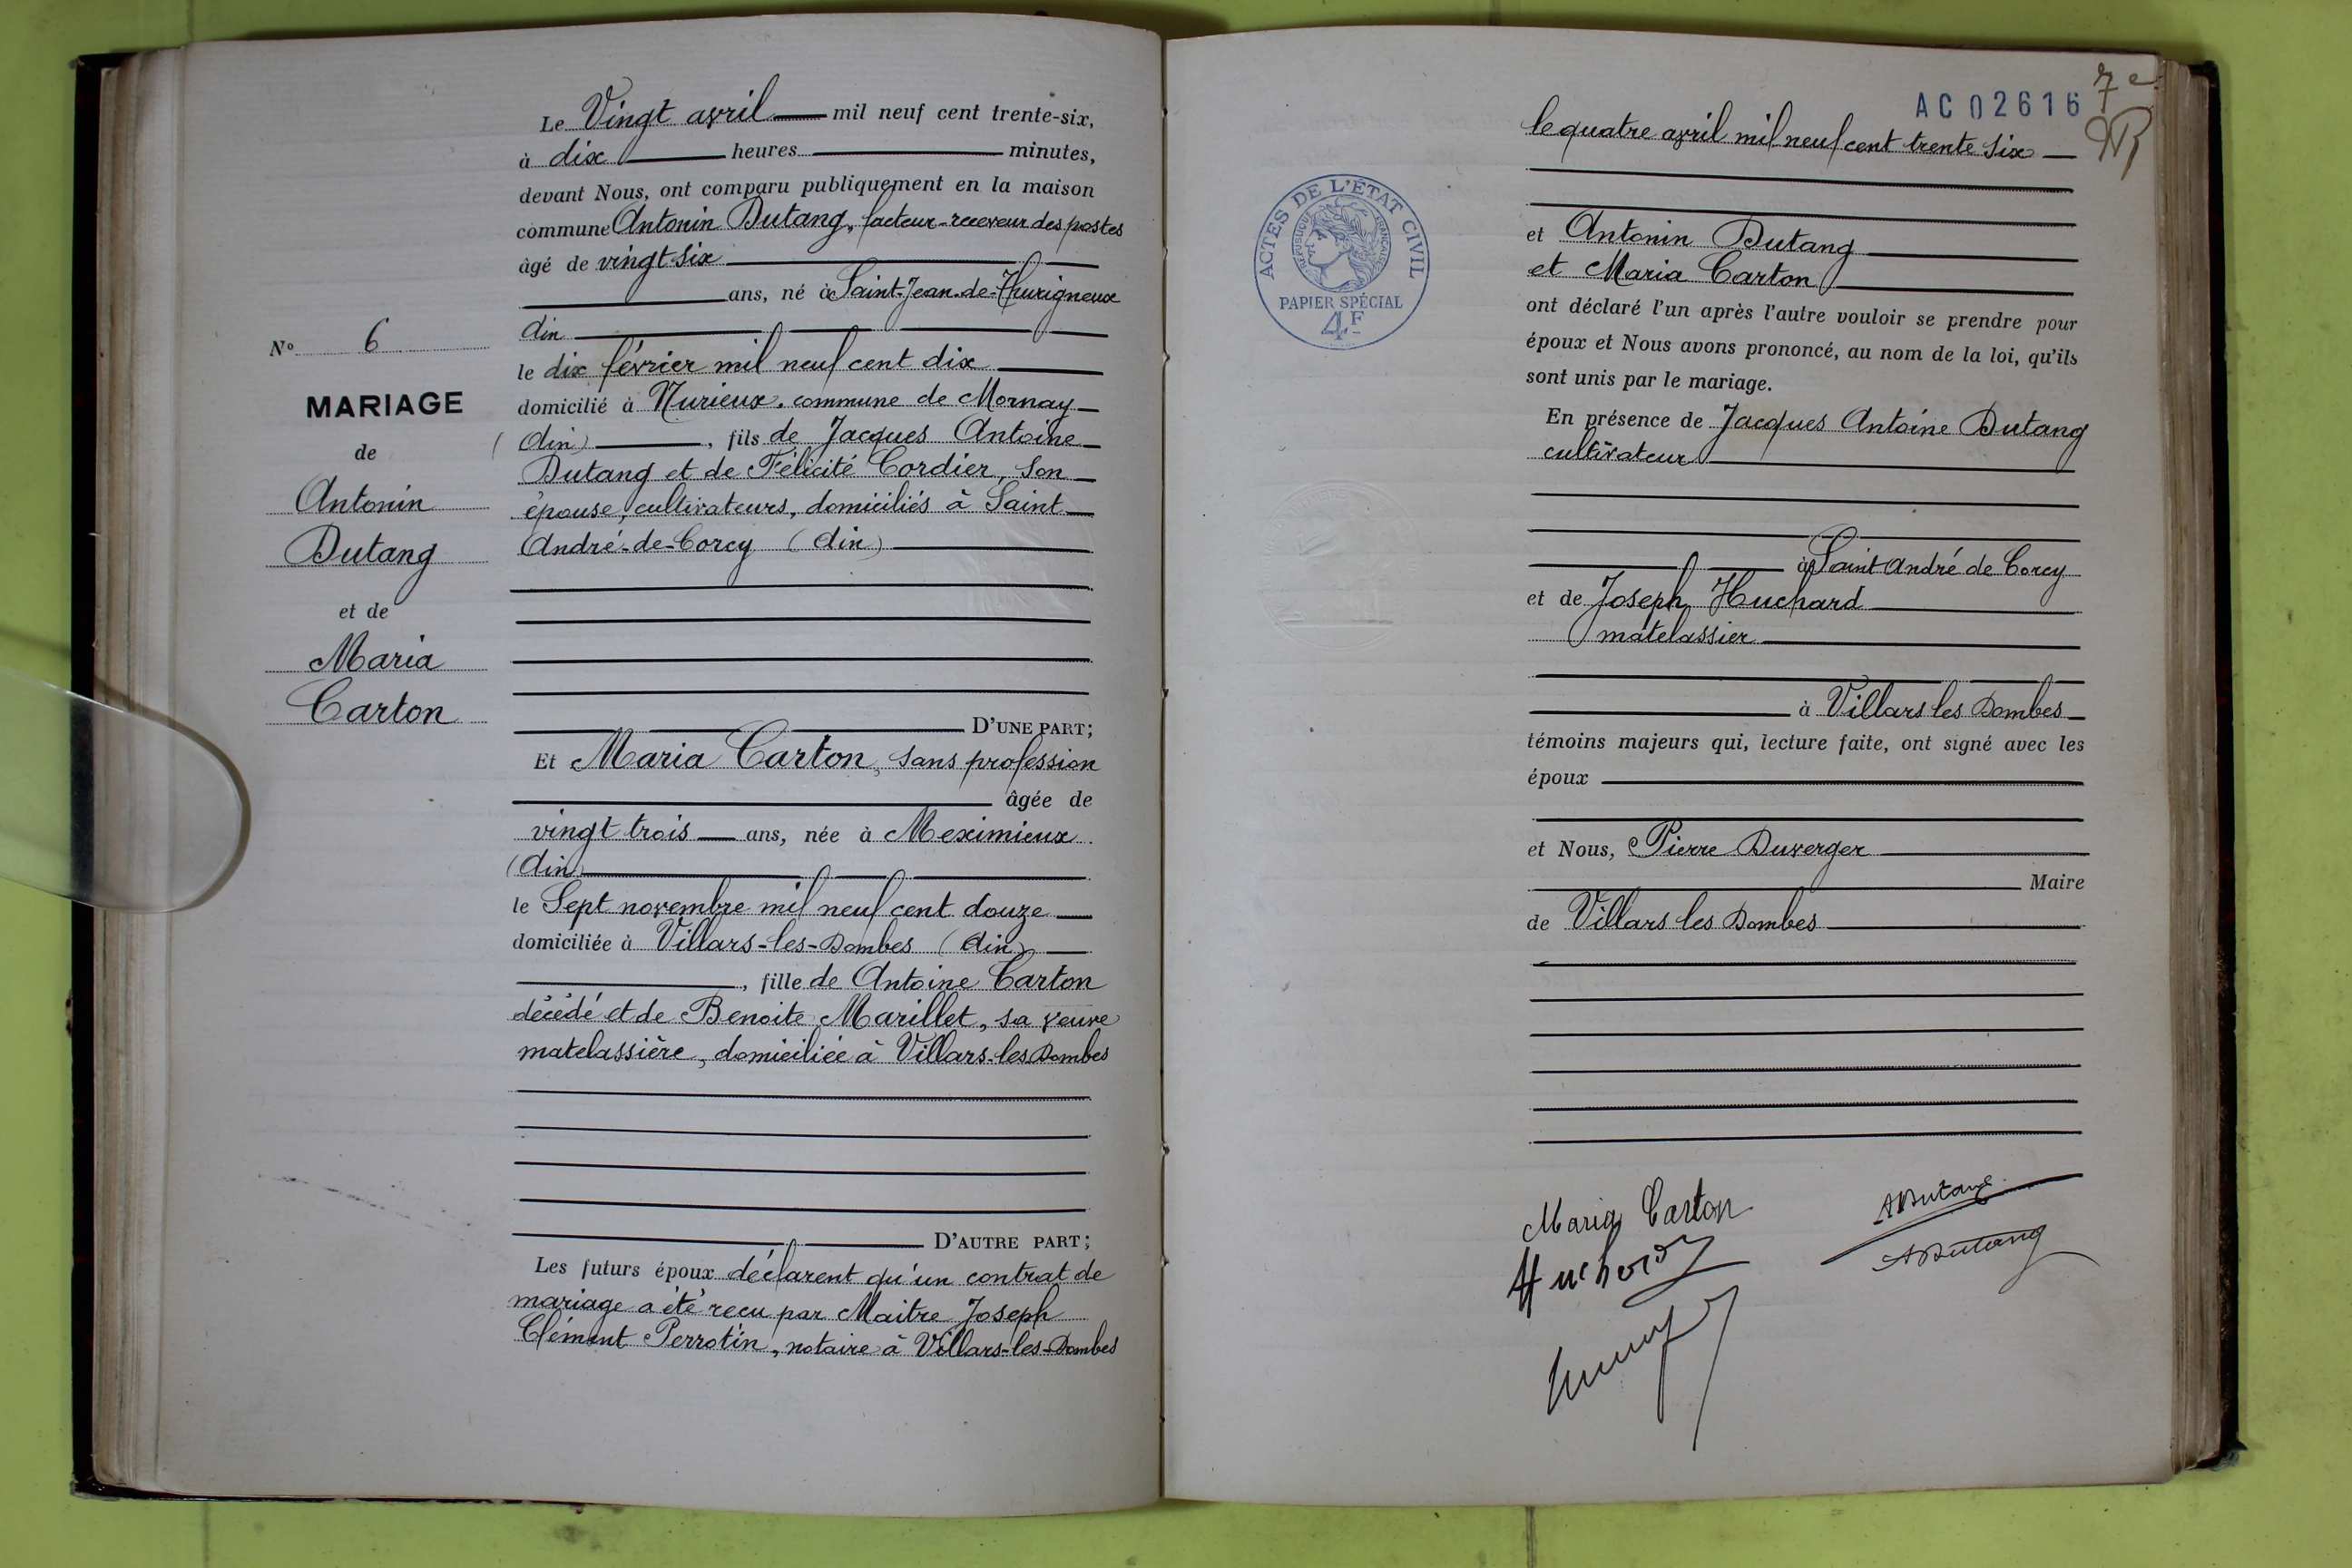 Le Vingt avril mil neuf cent trente-six,
à dix heures minutes,
devant Nous, ont comparu publiquement en la maison
commune Antonin Dutang, facteur-receveur des postes
âgé de vingt-six
ans, né à Saint-Jean-de-Thurigneux
Ain
le dix février mil neuf cent dix
domicilié à Nurieux, commune de Mornay
(Ain), fils de Jacques Antoine
Dutang et de Félicité Cordier, son
épouse, cultivateurs, domiciliés à Saint
André-de-Corcy (Ain)
D'UNE PART;
Et Maria Carton, sans profession
âgée de
vingt trois ans, née à Meximieux
(Ain)
le Sept novembre mil neuf cent douze
domiciliée à Villars-les-Dombes (Ain)
, fille de Antoine Carton
décédé et de Benoite Marillet, sa veuve
matelassière, domiciliée à Villars-les-Dombes
D'AUTRE PART;
Les futurs époux déclarent qu'un contrat de
mariage a été reçu par Maitre Joseph
Clément Perrotin, notaire à Villars-les-Dombes
No 6
MARIAGE
de
Antonin
Dutang
et de
Maria
Carton
7e
AC 02616
le quatre avril mil neuf cent trente six
et Antonin Dutang
et Maria Carton
ont déclaré l'un après l'autre vouloir se prendre pour
époux et Nous avons prononcé, au nom de la loi, qu'ils
sont unis par le mariage.
En présence de Jacques Antoine Dutang
cultivateur
à Saint André de Corcy
et de Joseph Huchard
matelassier
à Villars les Dombes
témoins majeurs qui, lecture faite, ont signé avec les
époux
et Nous, Pierre Duverger
Maire
de Villars les Dombes
ACTES DE L'ÉTAT CIVIL
RÉPUBLIQUE FRANÇAISE
PAPIER SPÉCIAL
4F
Maria Carton
ADutang
Huchard
ADutang